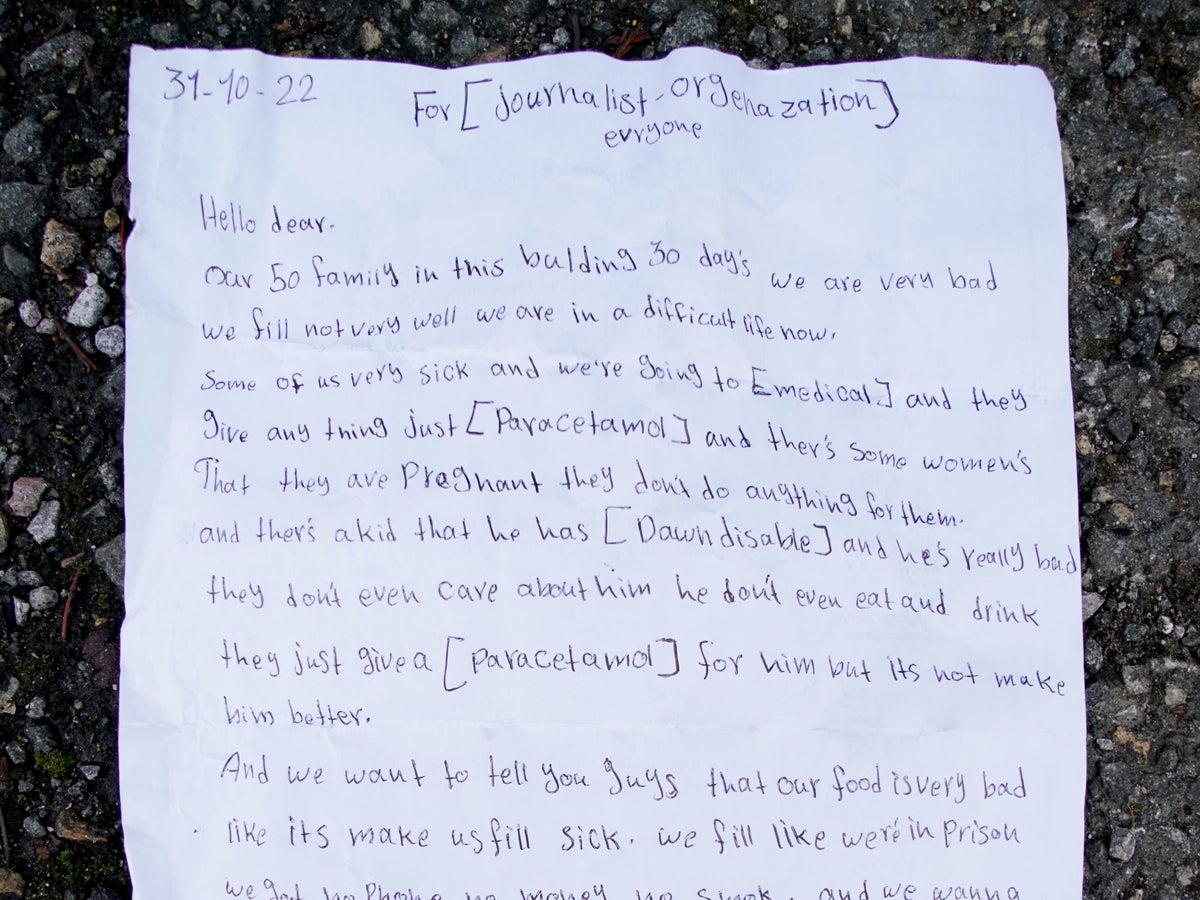 31-10-22
For [journalist-orgenazation]
evryone
Hello dear.
Our 50 family in this bulding 30 day's we are very bad
we fill not very well we are in a difficult life now.
Some of us very sick and we're going to [emedical] and they
give any thing just [Paracetamol] and ther's some women's
That they are Pregnant they don't do anything for them.
and ther's a kid that he has [Dawn disable] and he's really bad
they don't even care about him he don't even eat and drink
they just give a [Paracetamol] for him but its not make
him better.
And we want to tell you guys that our food is very bad
like its make us fill sick. we fill like were'e in Prison
we got no Phone no money no smok. and we wanna